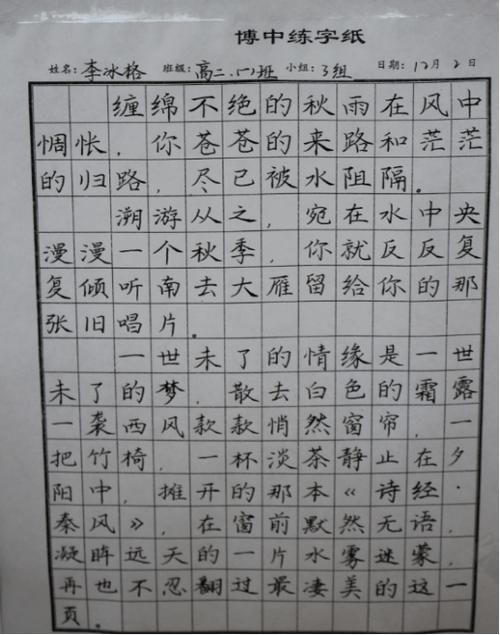 博中练字纸
姓名：李冰格 班级：高二.(一)班 小组：3组 日期：12月2日
缠绵不绝的秋雨在风中
惆怅，你苍苍的来路和茫茫
的归路，尽已被水阻隔。
溯游从之，宛在水中央
漫漫一个秋季，你就反反复
复倾听南去大雁留给你的那
张旧唱片。
一世未了的情缘是一世
未了的梦，散去白色的霜露
一袭西风款款悄然窗帘，一
把竹椅，一杯淡茶静止在夕
阳中，摊开的那本《诗经·
秦风》，在窗前默然无语，
凝眸远天的一片水雾迷蒙，
再也不忍翻过最凄美的这一
页。